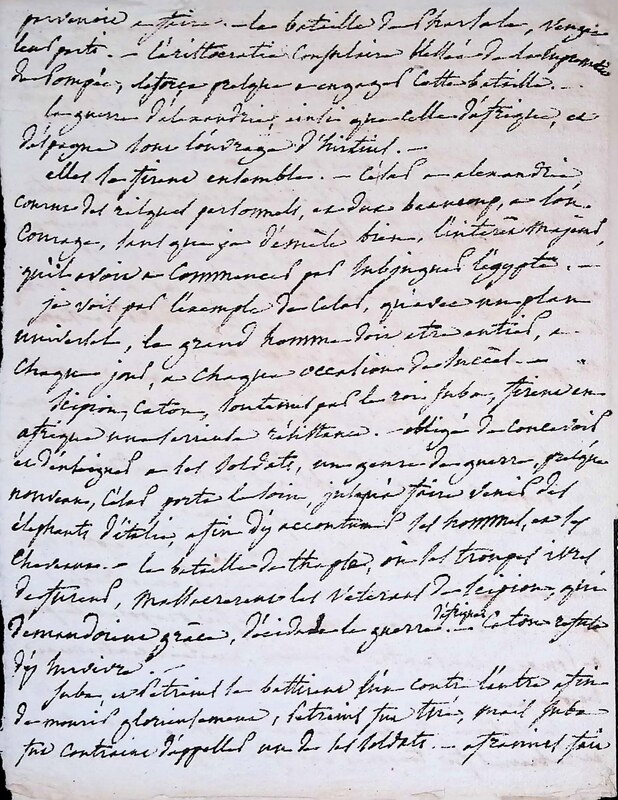 parvenoit a faire. — la bataille de pharsale, vengea
leur parti. — l'aristocratie consulaire blessée de la suprematie
de Pompée, le força presque a engager cette bataille. —
la guerre d'alexandrie, ainsi que celle d'afrique, et
d'espagne sont l'ouvrage d'hirtius. —
elles se firent ensemble. — César a alexandrie,
courut des risques personnels, et dut beaucoup, a son
courage, sans que je démêle bien, l'interêt majeur,
qu'il avoit a commencer par subjuguer l'égypte. —
je vois par l'exemple de César, qu'avec un plan
universel, le grand homme doit etre entier, a
chaque jour, a chaque occasion de succès. —
Scipion, Caton, soutenus par le roi Juba, firent en
afrique une serieuse résistance. — obligé de concevoir
et d'enseigner a ses soldats, un genre de guerre, presque
nouveau, César porta le soin, jusqu'a faire venir des
éléphants d'italie, afin d'y accoutumer ses hommes, et ses
chevaux. — la bataille de thapse, ou les troupes ivres
de fureur, massacrerent les vétérans de Scipion, qui
demandoient grâce, décida de la guerre d'afrique. — Caton refusa
d'y survivre. —
Juba et Petreius se battirent l'un contre l'autre afin
de mourir glorieusement, Petreius fut tué, mais Juba
fut contraint d'appeller un de ses soldats. — afranius fut